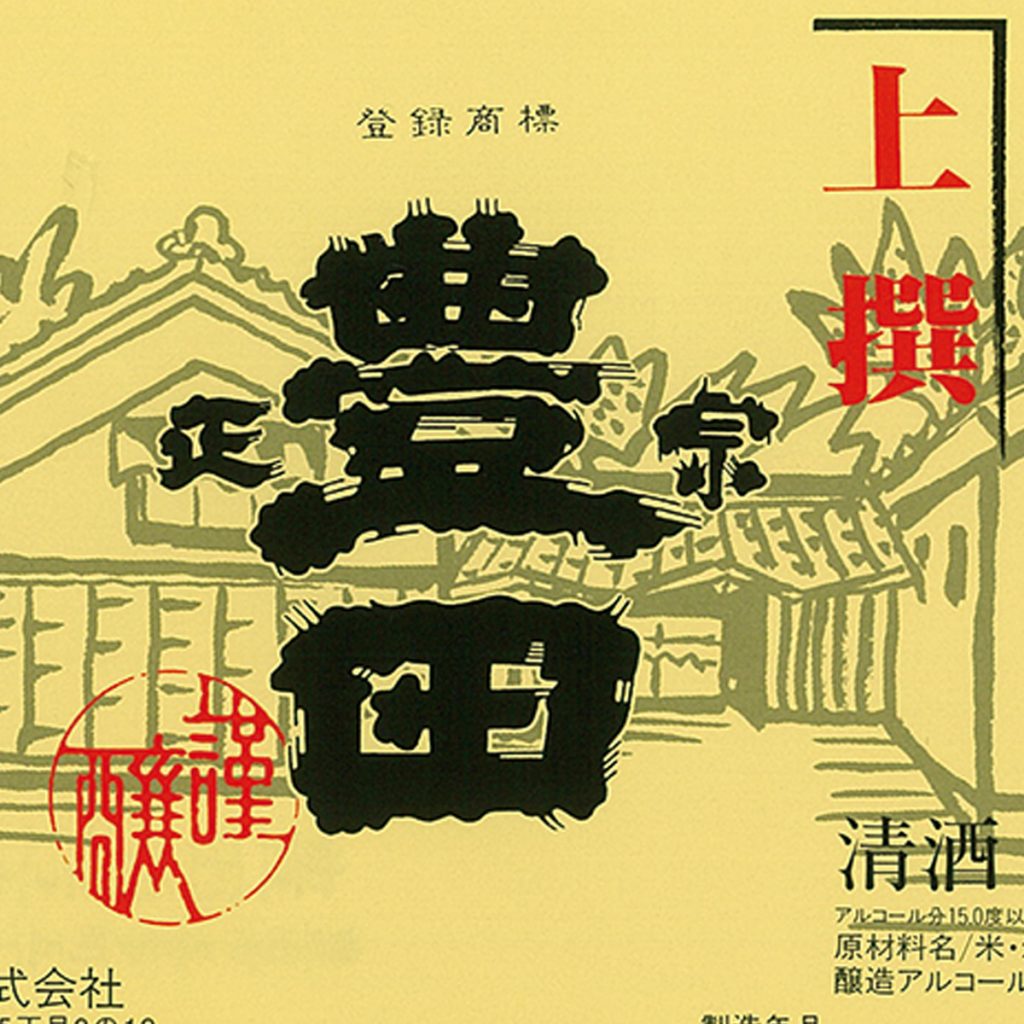 登録商標
上撰
豊田
正宗
謹醸
清酒
アルコール分15.0度以
原材料名/米・
醸造アルコール
式会社
製造年月